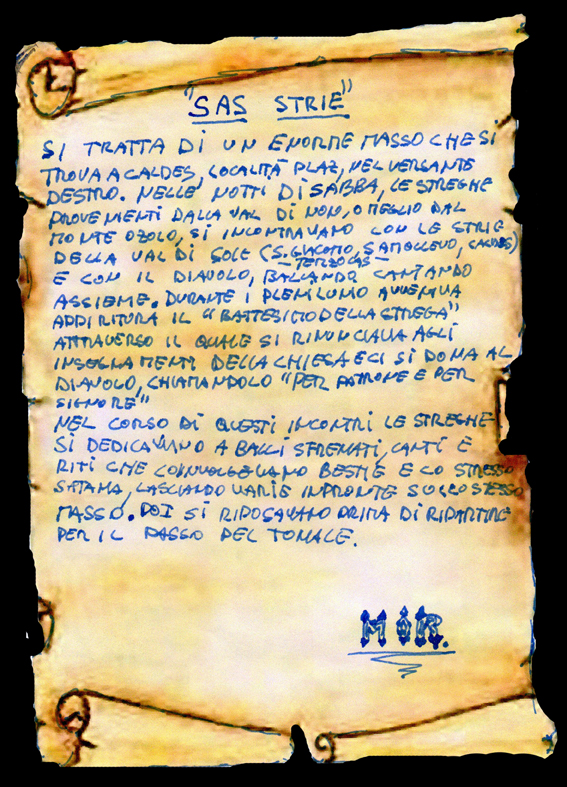 "SAS STRIE"
SI TRATTA DI UN ENORME MASSO CHE SI
TROVA A CALDES, LOCALITÁ PLAZ, NEL VERSANTE
DESTRO. NELLE NOTTI DI SABBA, LE STREGHE
PROVENIENTI DALLA VAL DI NON, O MEGLIO DAL
MONTE OZOLO, SI INCONTRAVANO CON LE STRIE
DELLA VAL DI SOLE (S. GIACOMO, SAMOCLEVO, CALDES)
- TERZOLAS -
E CON IL DIAVOLO, BALLANDO CANTANDO
ASSIEME. DURANTE I PLENILUNIO AVVENIVA
ADDIRITURA IL "BATTESIMO DELLA STREGA"
ATTRAVERSO IL QUALE SI RINUNCIAVA AGLI
INSEGNAMENTI DELLA CHIESA E CI SI DONA AL
DIAVOLO, CHIAMANDOLO "PER PATRONE E PER
SIGNORE"
NEL CORSO DI QUESTI INCONTRI LE STREGHE
SI DEDICAVANO A BALLI SFRENATI, CANTI E
RITI CHE COINVOLGEVANO BESTIE E LO STESSO
SATANA, LASCIANDO VARIE INPRONTE SULLO STESSO
MASSO. POI SI RIPOSAVANO PRIMA DI RIPARTIRE
PER IL PASSO DEL TONALE.